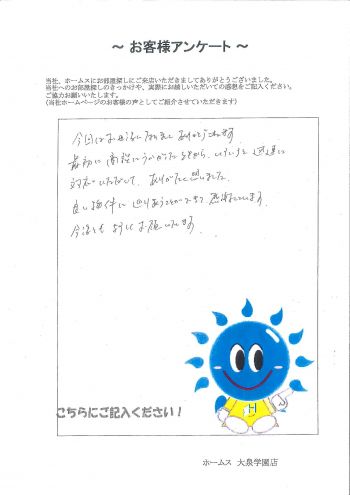 ～ お客様アンケート ～
当社、ホームスにお部屋探しにご来店いただきましてありがとうございました。
当社へのお部屋探しのきっかけや、実際にお越しいただいての感想をご記入ください。
ご協力お願いいたします。
(当社ホームページのお客様の声としてご紹介させていただきます)
今回はお世話になりまして ありがとうございます。
最初に うかがった ときから、 迅速に
対応いただいて、ありがたく思いました。
良い物件に 巡りあうことができて 感謝しています。
今後とも よろしく お願いいたします。
こちらにご記入ください！
H
ホームス 大泉学園店